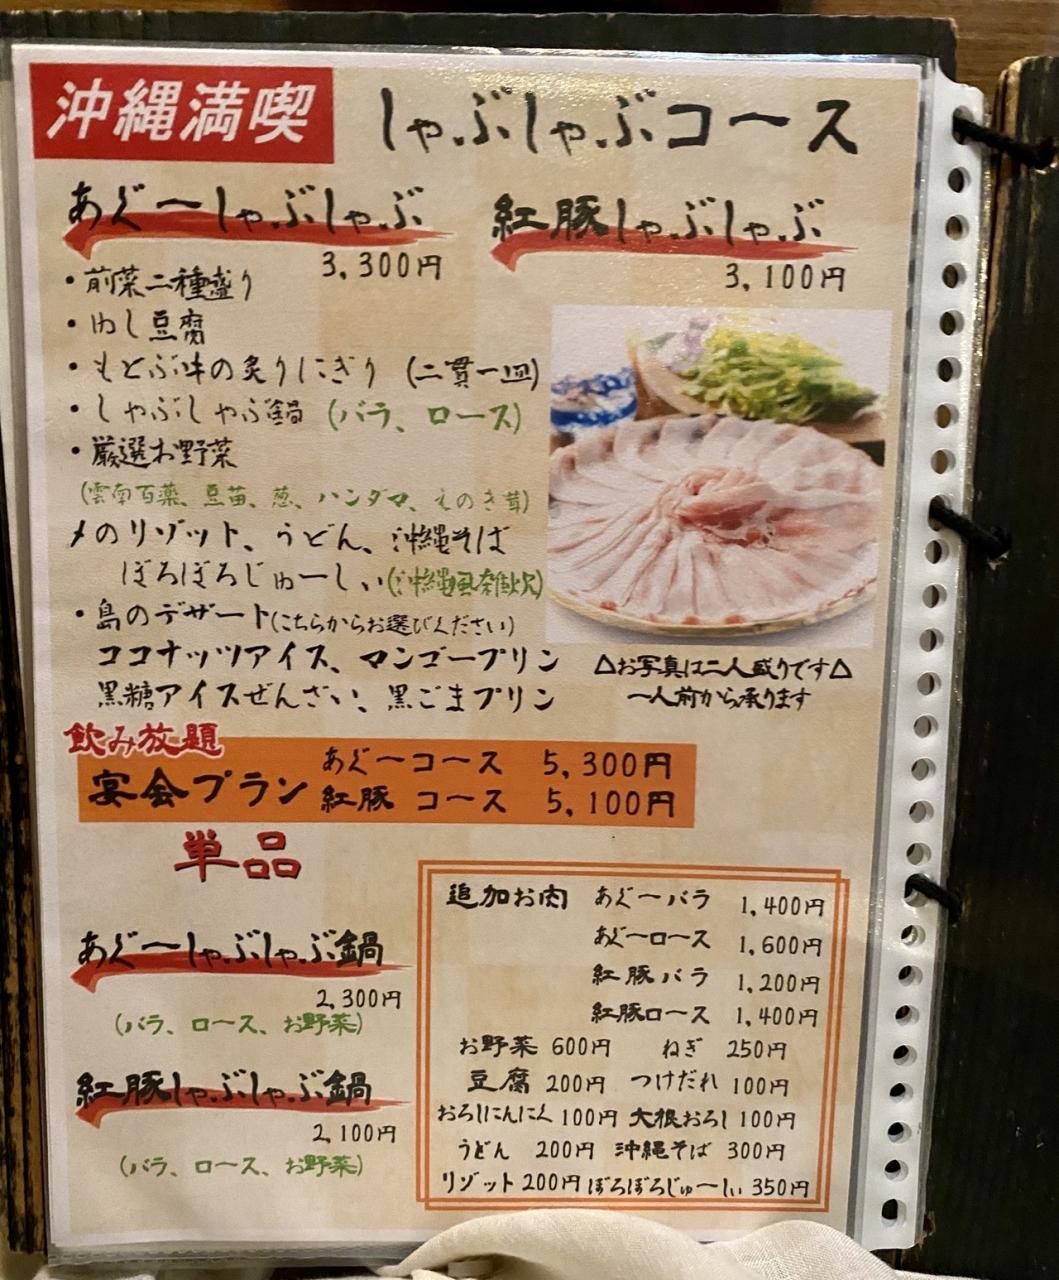 沖縄満喫 しゃぶしゃぶコース
あぐ～しゃぶしゃぶ
3,300円
紅豚しゃぶしゃぶ
3,100円
・前菜二種盛り
・ゆし豆腐
・もとぶ牛の炙りにぎり (二貫一皿)
・しゃぶしゃぶ鍋 (バラ、ロース)
・厳選お野菜
(雲南百薬、豆苗、葱、ハンダマ、えのき茸)
〆のリゾット、うどん、沖縄そば
ぼろぼろじゅーしぃ(沖縄風雑炊)
・島のデザート(こちらからお選びください)
ココナッツアイス、マンゴープリン
黒糖アイスぜんざい、黒ごまプリン
△お写真は二人盛りです△
一人前から承ります
飲み放題
宴会プラン
あぐーコース 5,300円
紅豚 コース 5,100円
単品
あぐ～しゃぶしゃぶ鍋
2,300円
(バラ、ロース、お野菜)
紅豚しゃぶしゃぶ鍋
2,100円
(バラ、ロース、お野菜)
追加お肉 あぐーバラ 1,400円
あぐーロース 1,600円
紅豚バラ 1,200円
紅豚ロース 1,400円
お野菜 600円 ねぎ 250円
豆腐 200円 つけだれ 100円
おろしにんにく 100円 大根おろし 100円
うどん 200円 沖縄そば 300円
リゾット 200円 ぼろぼろじゅ～しぃ 350円